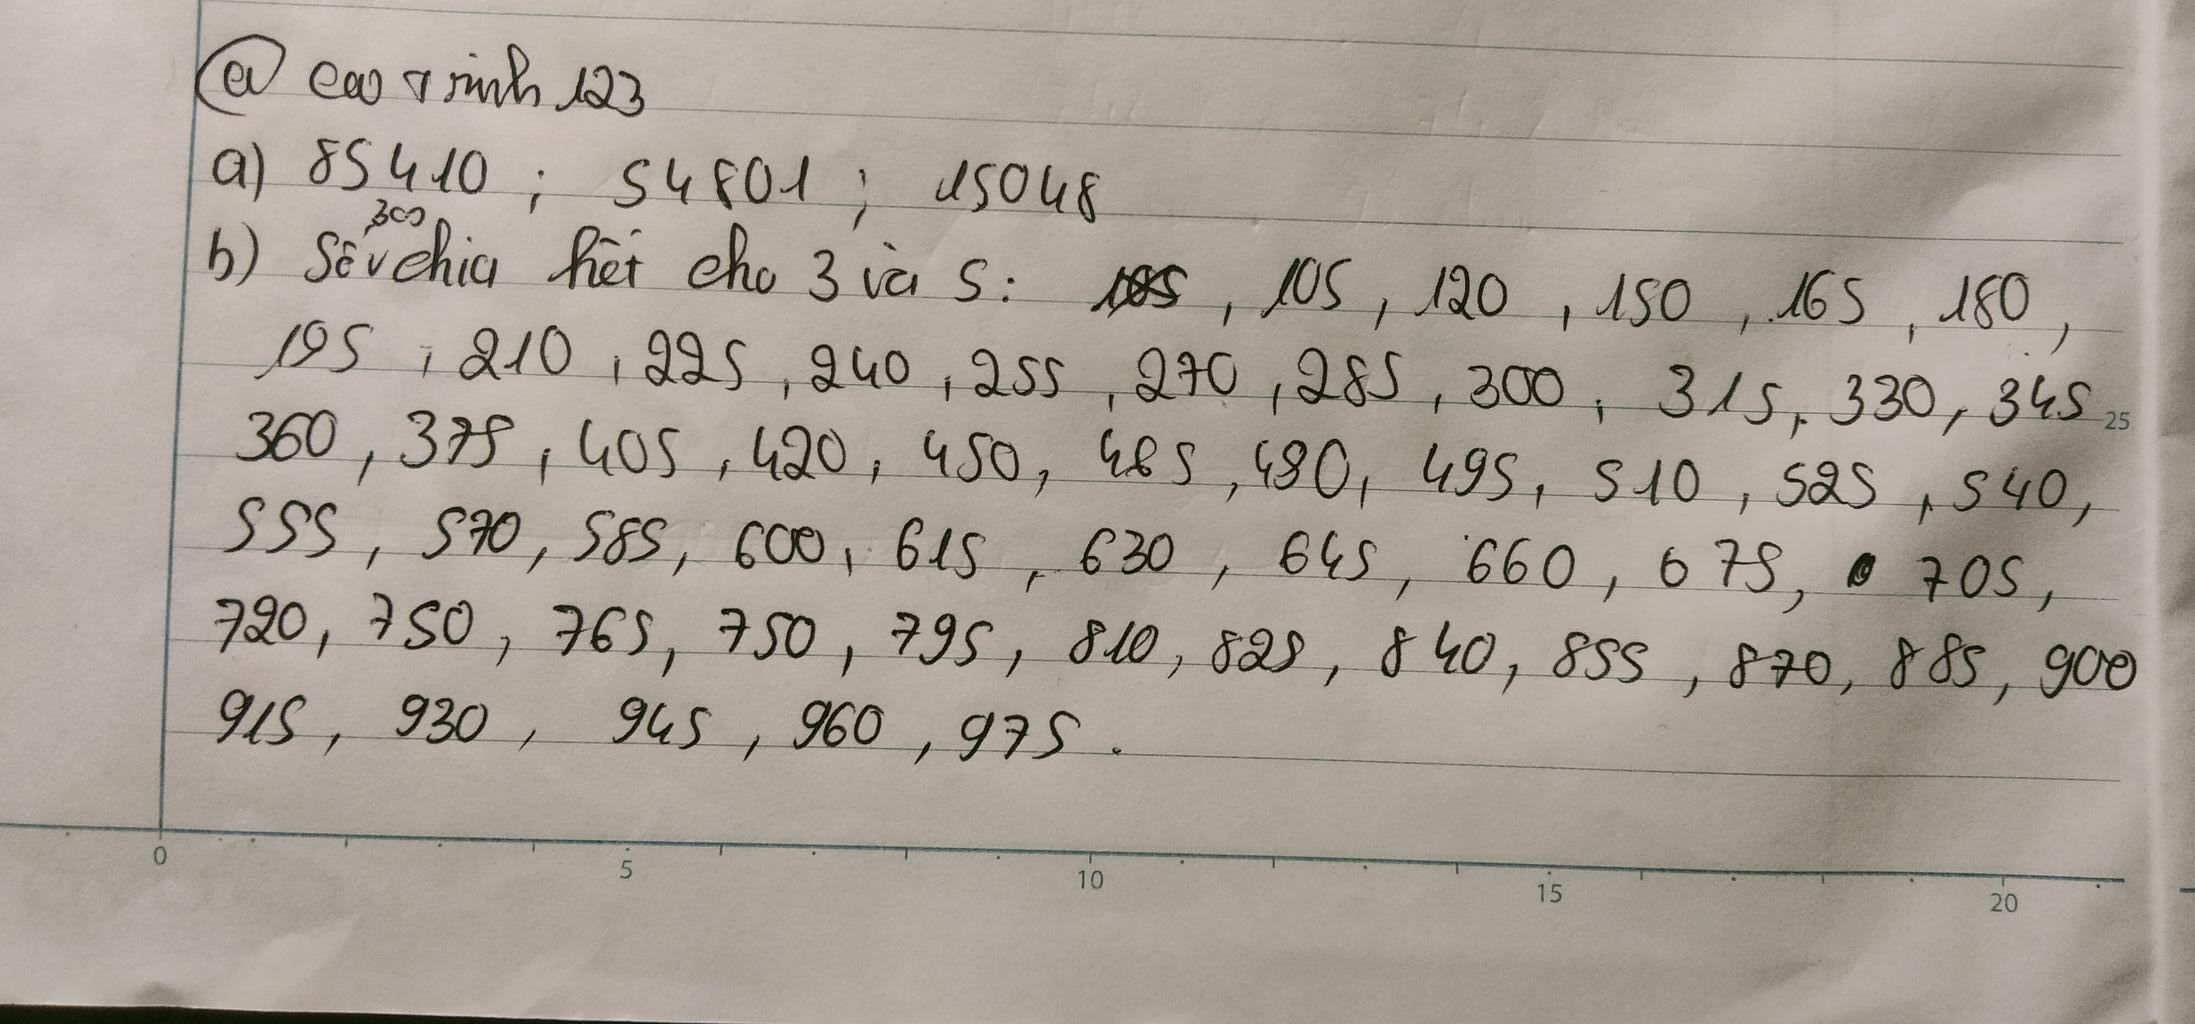 @ cao trinh 123
a) 85410 ; 54801 ; 15048
300
b) Số v chia hết cho 3 và 5: 105, 105, 120, 150, 165, 180,
195, 210, 225, 240, 255, 270, 285, 300, 315, 330, 345 25
360, 375, 405, 420, 450, 465, 480, 495, 510, 525, 540,
555, 570, 585, 600, 615, 630, 645, 660, 675, 705,
720, 750, 765, 750, 795, 810, 825, 840, 855, 870, 885, 900
915, 930, 945, 960, 975.
0 5 10 15 20